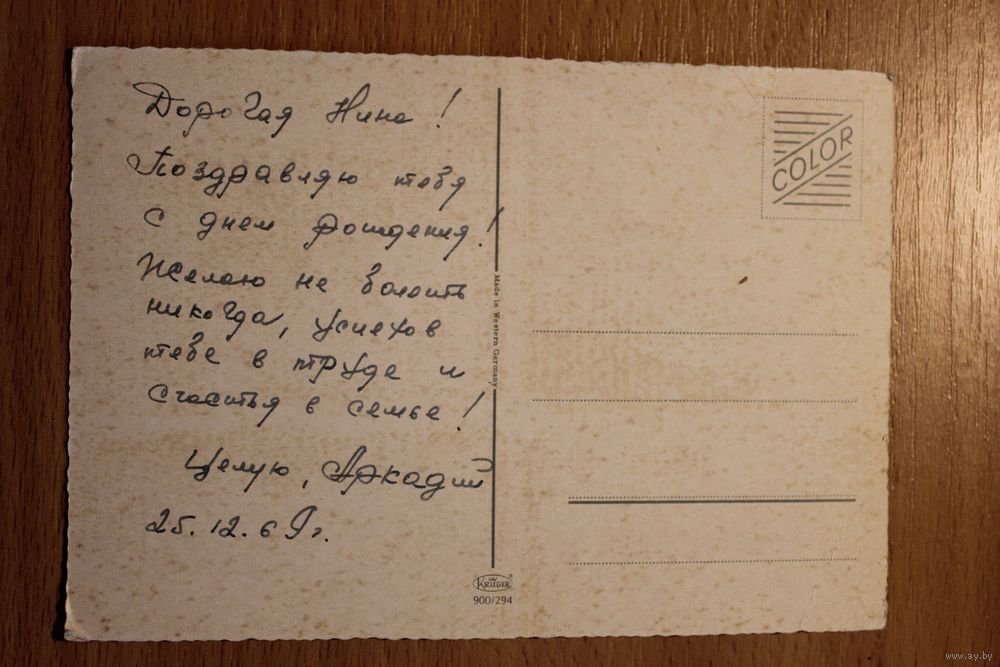 Дорогая Нина!
Поздравляю тебя
с днем рождения!
Желаю не болеть
никогда, успехов
тебе в труде и
счастья в семье!
Целую, Аркадий
25.12.69г.
Made in Western Germany
KRÜGER
900/294
COLOR
www.ay.by